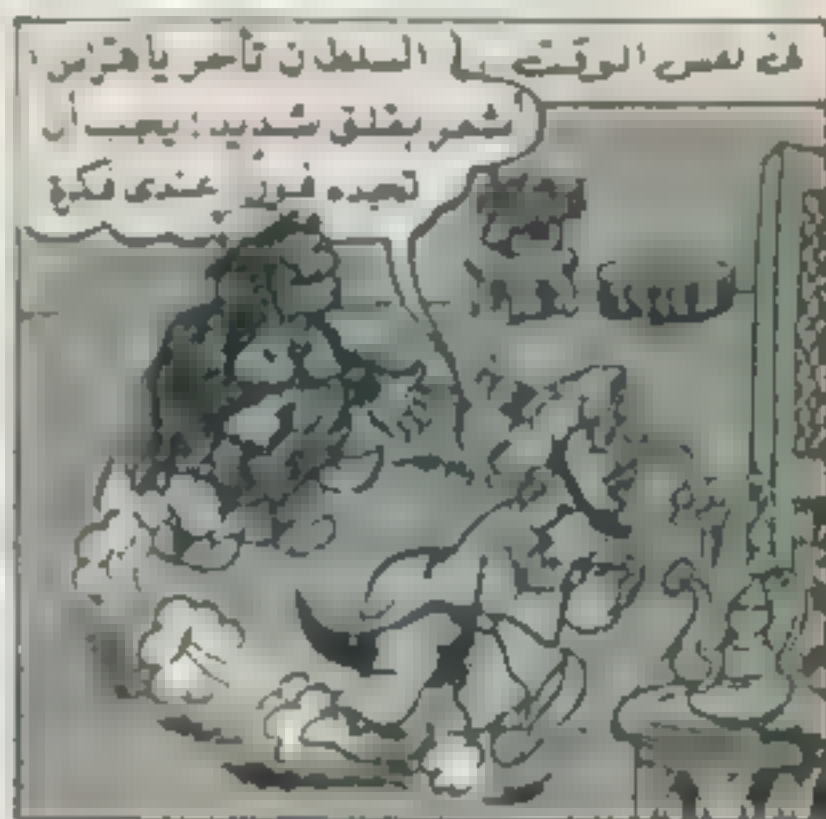 في نفس الوقت
السلطان تأخر يا هراس !
أشعر بقلق شديد : يجب أن
تعيده فورا عندى فكرة